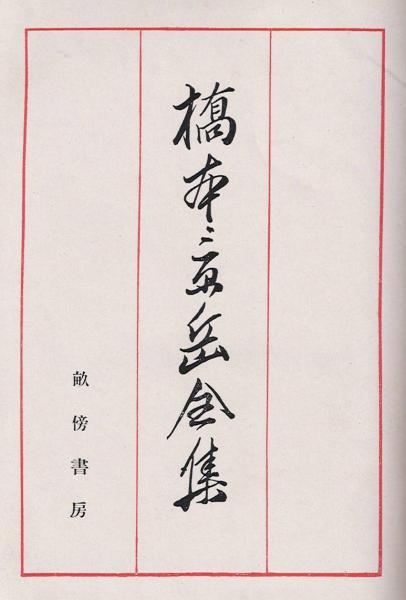 橋本景岳全集
畝傍書房